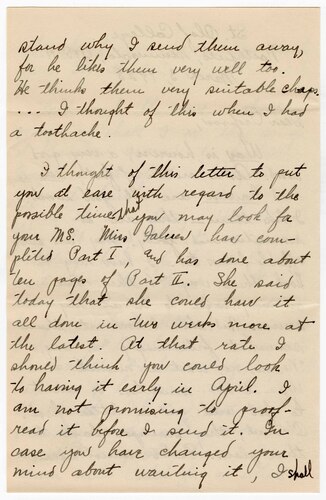 stand why I send them away,
for he likes them very well too.
He thinks them very suitable chaps.
.... I thought of this when I had
a toothache.
I thought of this letter to put
you at ease with regard to the
possible time that you may look for
your MS. Miss has com-
pleted Part I, and has done about
ten pages of Part II. She said
today that she could have it
all done in two weeks more at
the latest. At that rate I
should think you could look
to having it early in April. I
am not promising to proof-
read it before I send it. In
case you have changed your
mind about wanting it, I shall